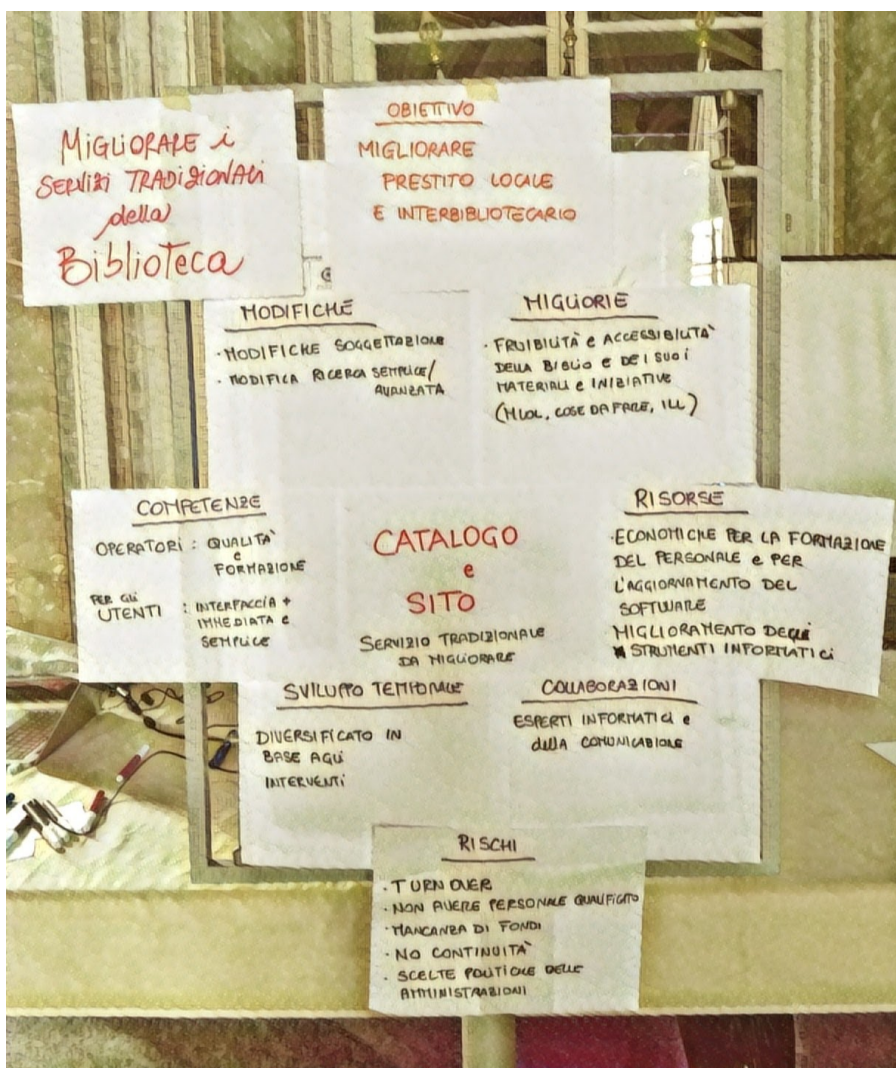 MIGLIORARE i
SERVIZI TRADIZIONALI
della
BiblioTeca
OBIETTIVO
MIGLIORARE
PRESTITO LOCALE
E INTERBIBLIOTECARIO
MODIFICHE
· MODIFICHE SOGGETTAZIONE
· MODIFICA RICERCA SEMPLICE/
AVANZATA
MIGLIORIE
· FRUIBILITÀ e ACCESSIBILITÀ
DELLA BIBLIO E DEI SUOI
MATERIALI e INIZIATIVE
(MLOL, COSE DA FARE, ILL)
COMPETENZE
OPERATORI : QUALITÀ
e
FORMAZIONE
PER GLI
UTENTI : INTERFACCIA +
IMMEDIATA e
SEMPLICE
CATALOGO
e
SITO
SERVIZIO TRADIZIONALE
DA MIGLIORARE
RISORSE
· ECONOMICHE PER LA FORMAZIONE
DEL PERSONALE e PER
L'AGGIORNAMENTO DEL
SOFTWARE
MIGLIORAMENTO DEGLI
STRUMENTI INFORMATICI
SVILUPPO TEMPORALE
DIVERSIFICATO IN
BASE AGLI
INTERVENTI
COLLABORAZIONI
ESPERTI INFORMATICI e
della COMUNICAZIONE
RISCHI
· TURN OVER
· NON AVERE PERSONALE QUALIFICATO
· MANCANZA DI FONDI
· NO CONTINUITÀ
· SCELTE POLITICHE DELLE
AMMINISTRAZIONI